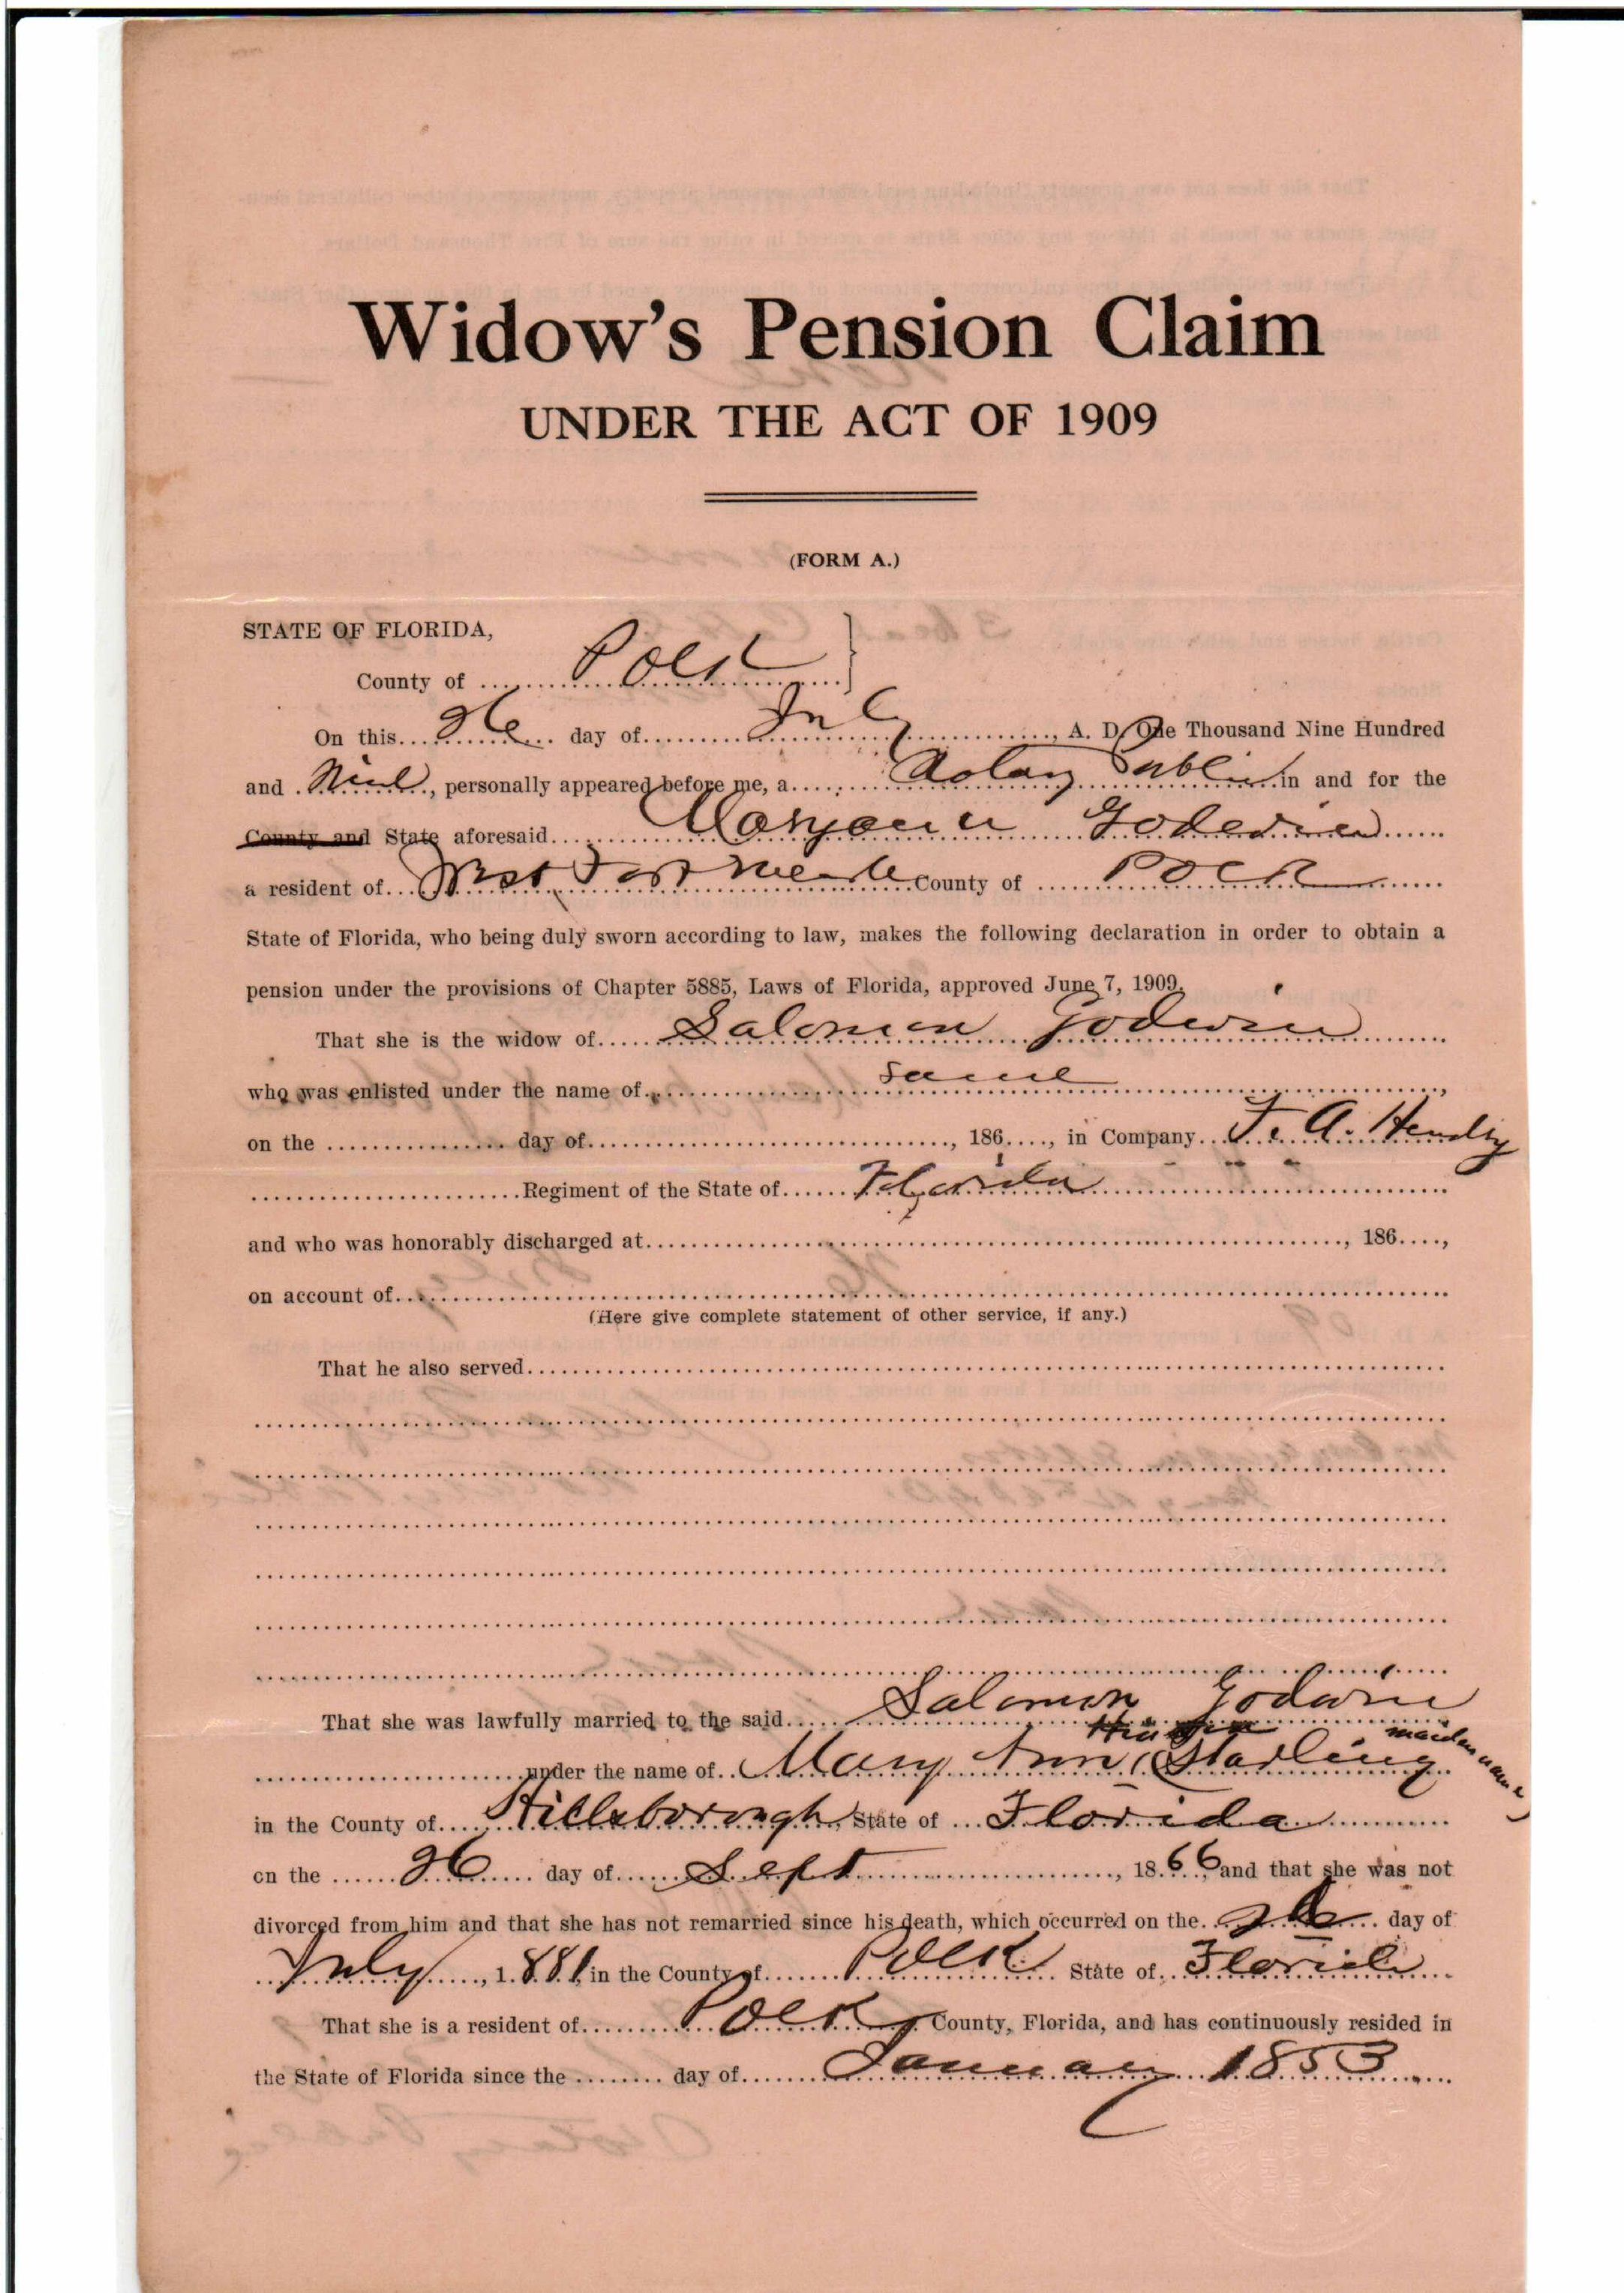 Widow's Pension Claim
UNDER THE ACT OF 1909
(FORM A.)
STATE OF FLORIDA,
County of Polk
On this 26 day of July, A. D. One Thousand Nine Hundred
and Nine, personally appeared before me, a Notary Public in and for the
County and State aforesaid Maryann Godwin
a resident of West Fort Meade County of Polk
State of Florida, who being duly sworn according to law, makes the following declaration in order to obtain a
pension under the provisions of Chapter 5885, Laws of Florida, approved June 7, 1909.
That she is the widow of Salomon Godwin
who was enlisted under the name of same,
on the day of, 186, in Company F. A. Hendry
Regiment of the State of Florida
and who was honorably discharged at, 186,
on account of
(Here give complete statement of other service, if any.)
That he also served
That she was lawfully married to the said Salomon Godwin
maiden name)
under the name of Mary Ann (Starling
in the County of Hillsborough State of Florida
on the 26 day of Sept, 1866, and that she was not
divorced from him and that she has not remarried since his death, which occurred on the 26 day of
July, 1881, in the County of Polk State of Florida
That she is a resident of Polk County, Florida, and has continuously resided in
the State of Florida since the day of January 1853